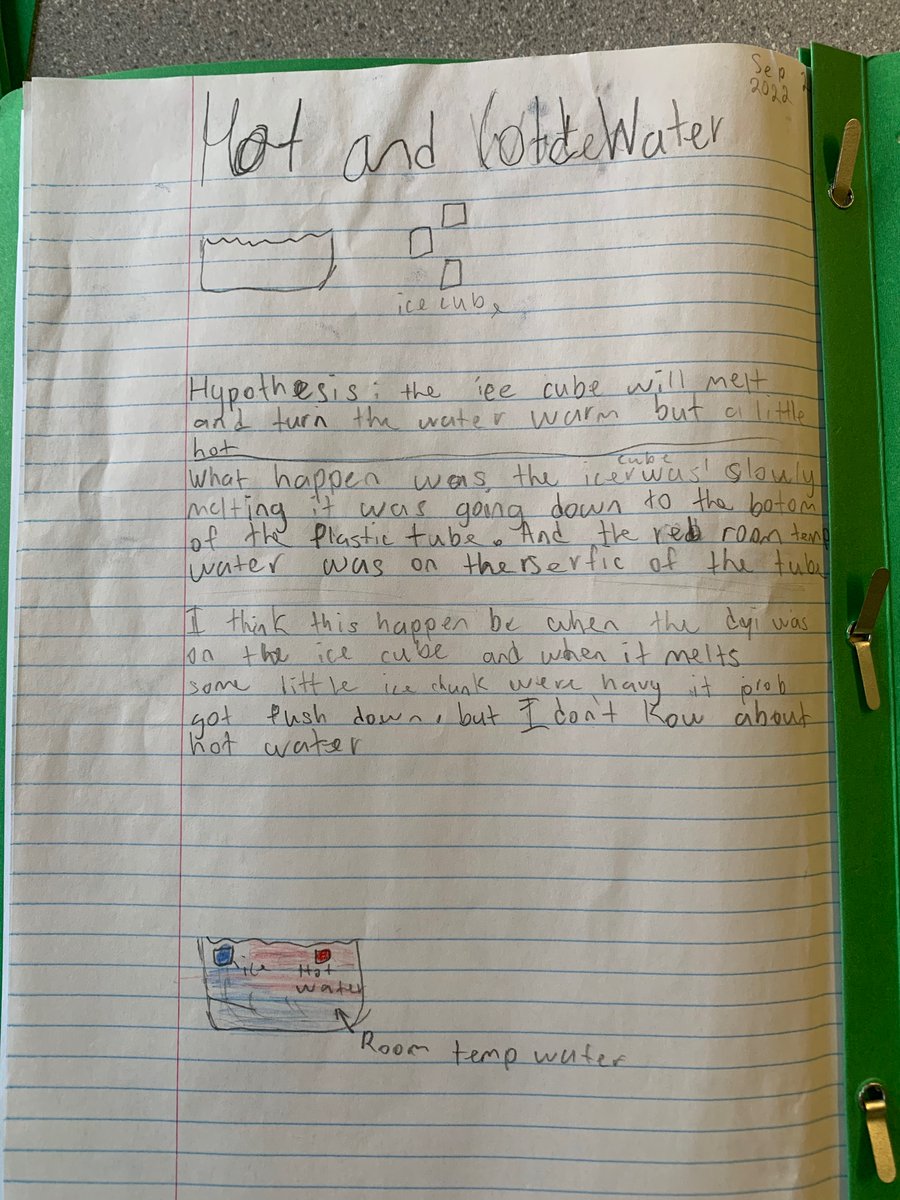 Sep 2
2022
Hot and Cold Water
ice cube
Hypothesis: the ice cube will melt
and turn the water warm but a little
hot
cube
What happen was, the ice was slowly
melting it was going down to the botom
of the plastic tube. And the red room temp
water was on the serfic of the tube
I think this happen bc when the dyi was
on the ice cube and when it melts
some little ice chunk were havy it prob
got push down, but I don't Kow about
hot water
ice Hot
water
Room temp water